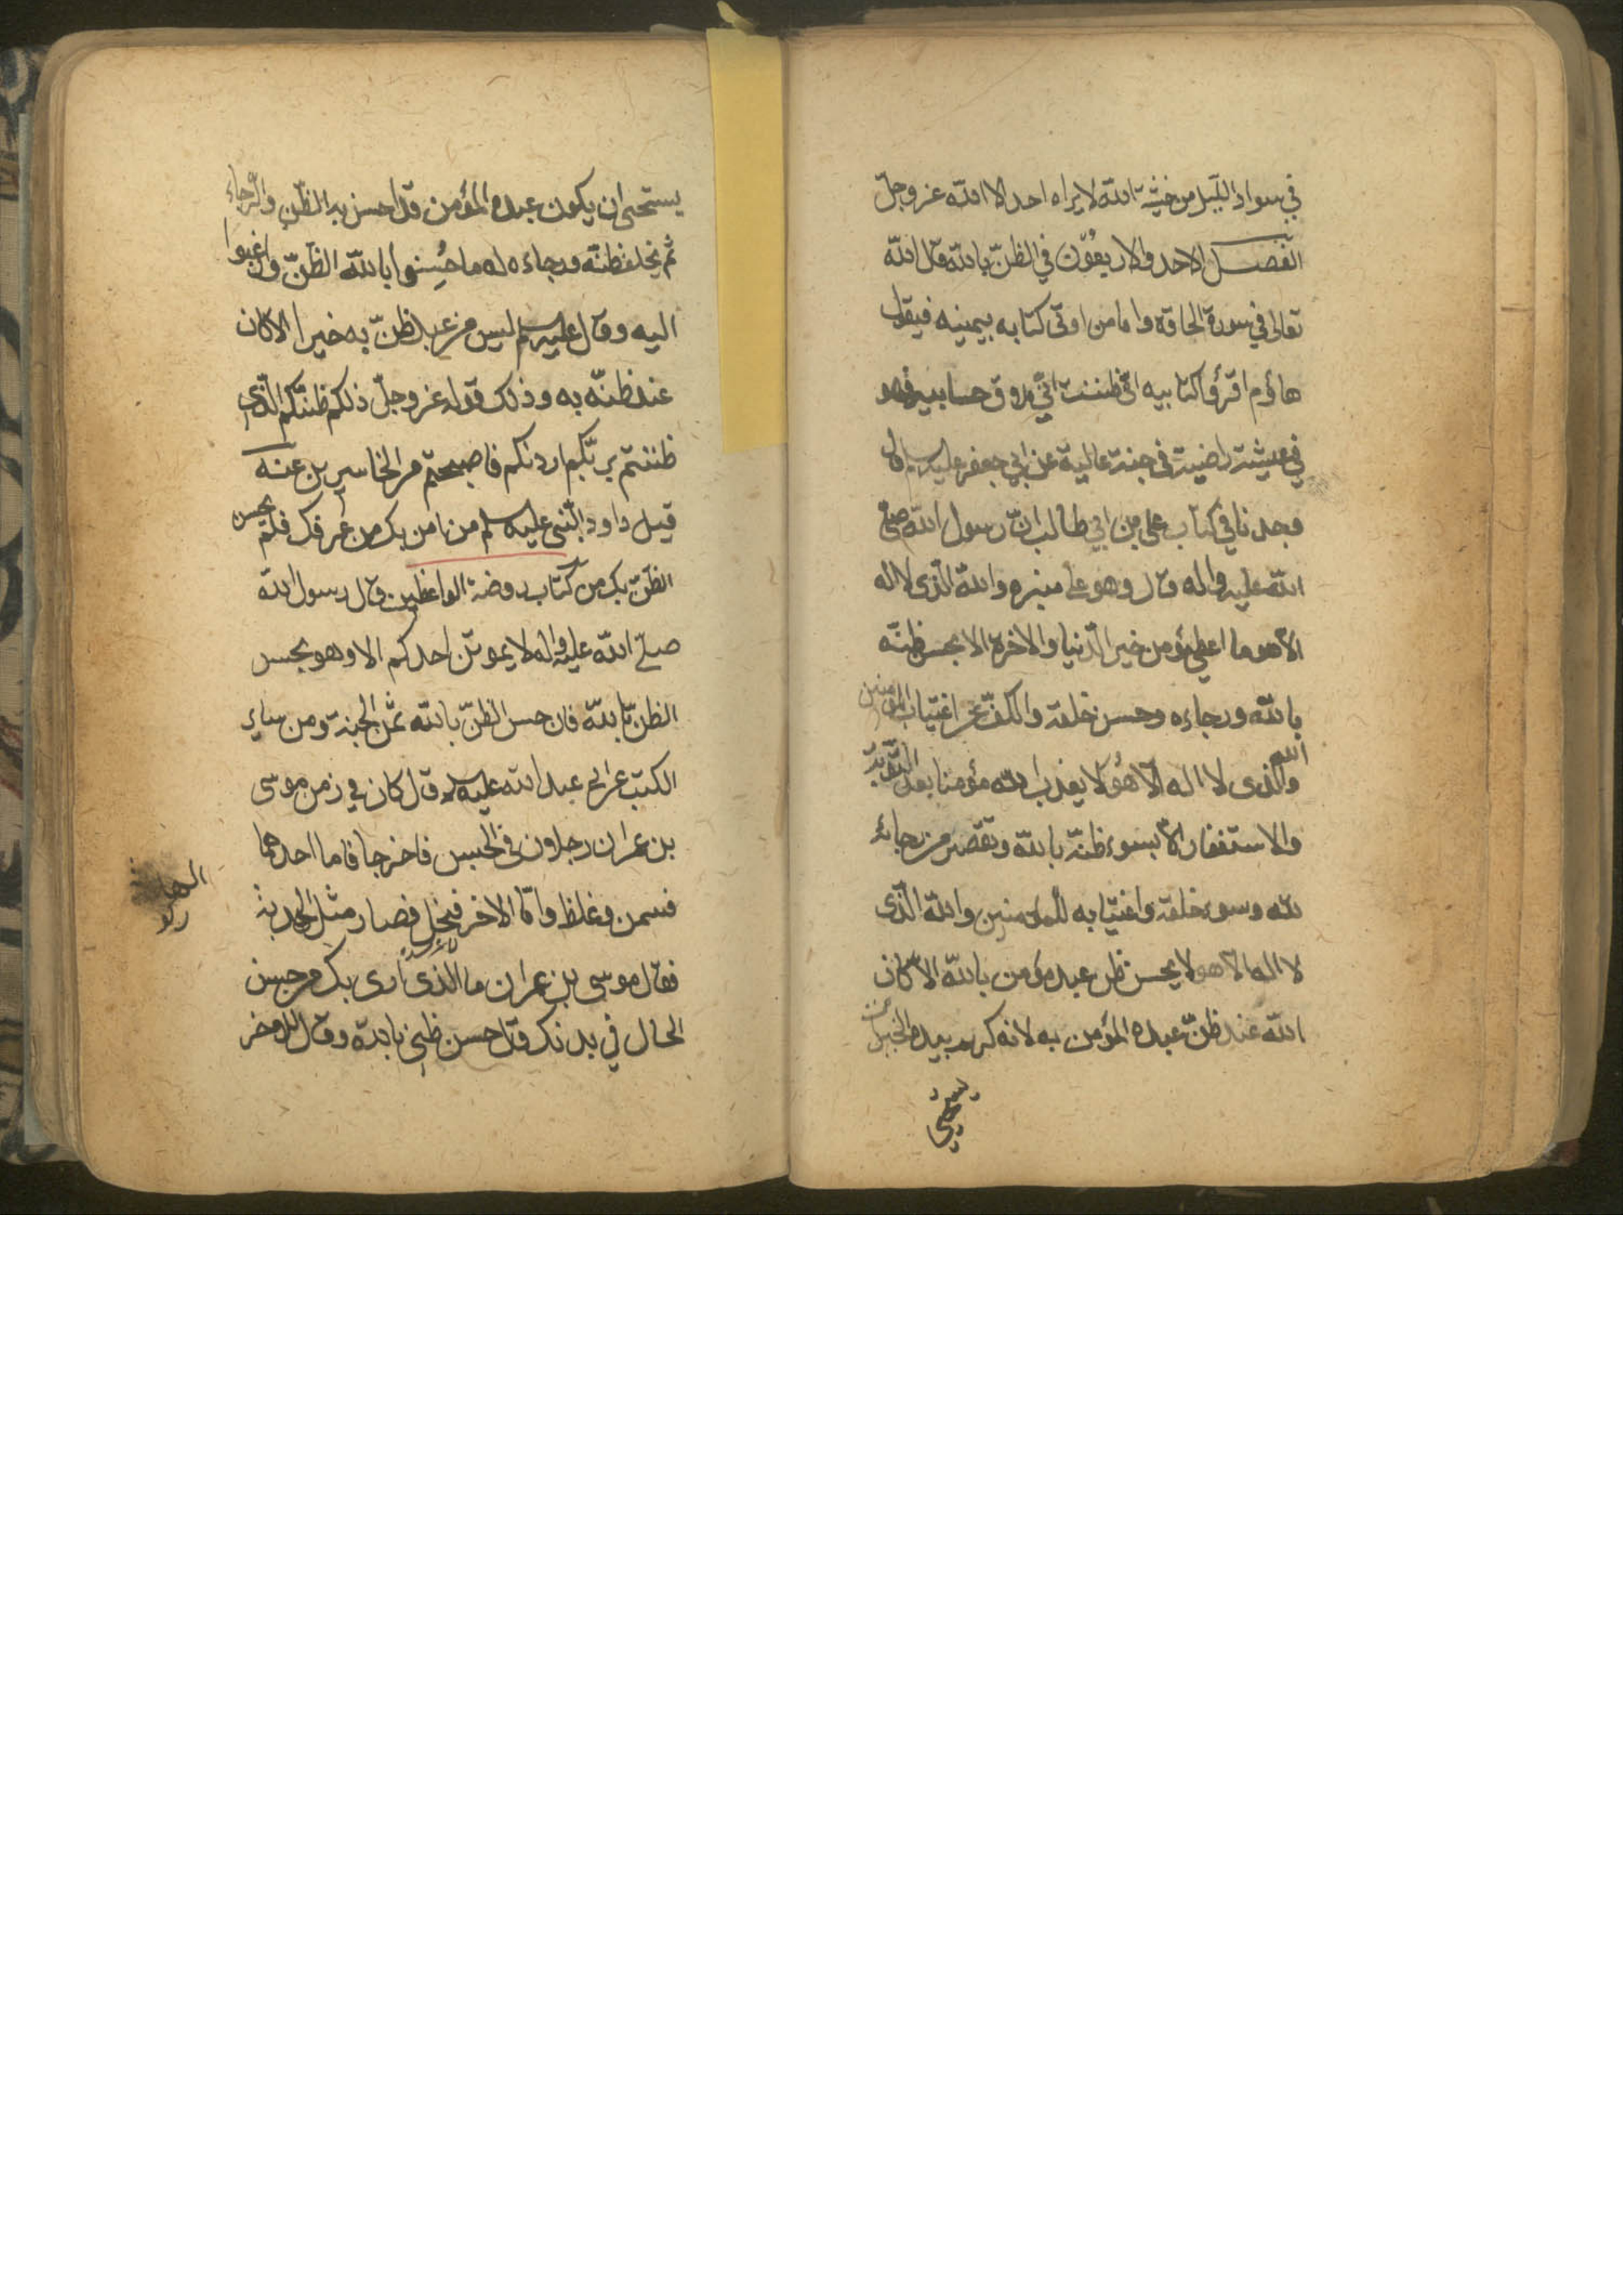 في سواد الليل من خشية الله لا يراه احد الا الله عز وجل
الفصل الاحد والاربعون في الظن بالله قال الله
تعالى في سورة الحاقة واما من اوتى كتابه بيمينه فيقول
هاؤم اقرؤا كتابيه انى ظننت انى ملاق حسابيه فهو
في عيشة راضية في جنة عالية عن ابي جعفر عليه السلام قال
وجدنا في كتاب على بن ابي طالب ان رسول الله صلى
الله عليه واله قال وهو على منبره والله الذى لا اله
الا هو ما اعطى مؤمن خير الدنيا والاخرة الا بحسن ظنه
بالله ورجاءه وحسن خلقه والكف عن اغتياب المؤمنين
والله الذى لا اله الا هو لا يعذب الله مؤمنا بعد التوبة
والاستغفار الا بسوء ظنه بالله وتقصير من رجائه
لله وسوء خلقه واغتيابه للمؤمنين والله الذى
لا اله الا هو لا يحسن ظن عبد مؤمن بالله الا كان
الله عند ظن عبده المؤمن به لانه كريم بيده الخيرات
يستحيي
يستحيى ان يكون عبده المؤمن قد احسن به الظن والرجاء
ثم يخلف ظنه ورجاءه له فاحسنوا بالله الظن وارغبوا
اليه وقال عليه السلم ليس من عبد ظن به خيرا الا كان
عند ظنه به وذلك قوله عز وجل ذلكم ظنكم الذى
ظننتم بربكم ارديكم فاصبحتم من الخاسرين عنه
قيل داود النبى عليه السلم من امن بك من عرفك فلم يحسن
الظن بك من كتاب روضة الواعظين قال رسول الله
صلى الله عليه واله لا يموتن احدكم الا وهو يحسن
الظن بالله فان حسن الظن بالله ثمن الجنة ومن سائر
الكتب عن ابي عبد الله عليه السلم قال كان في زمن موسى
بن عمران رجلان في الحبس فاخرجا فاما احدهما
فسمن وغلظ واما الاخر فنحل فصار مثل الهدبة
فقال موسى بن عمران ما الذى ارى بك من حسن
الحال في بدنك قال حسن ظنى بالله وقال للاخر